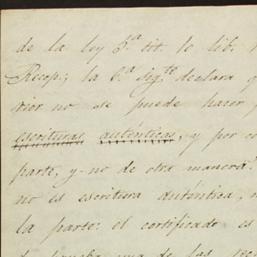 de la ley 3.ª tit. 10 lib.
Recop.; la 6.ª sig.te declara q
rior no se puede hacer
escrituras auténticas, y por
parte, y no de otra manera
no es escritura auténtica,
la parte: el certificado es
una de las